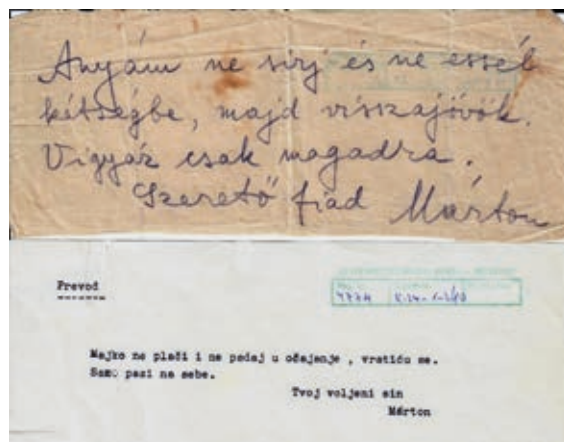 Anyám ne sírj és ne essél
kétségbe, majd visszajövök.
Vigyáz csak magadra.
Szerető fiad Márton
Prevod
4774 K.24-1-2/10
Majko ne plači i ne padaj u očajenje , vratiću se.
Samo pazi na sebe.
Tvoj voljeni sin
Márton